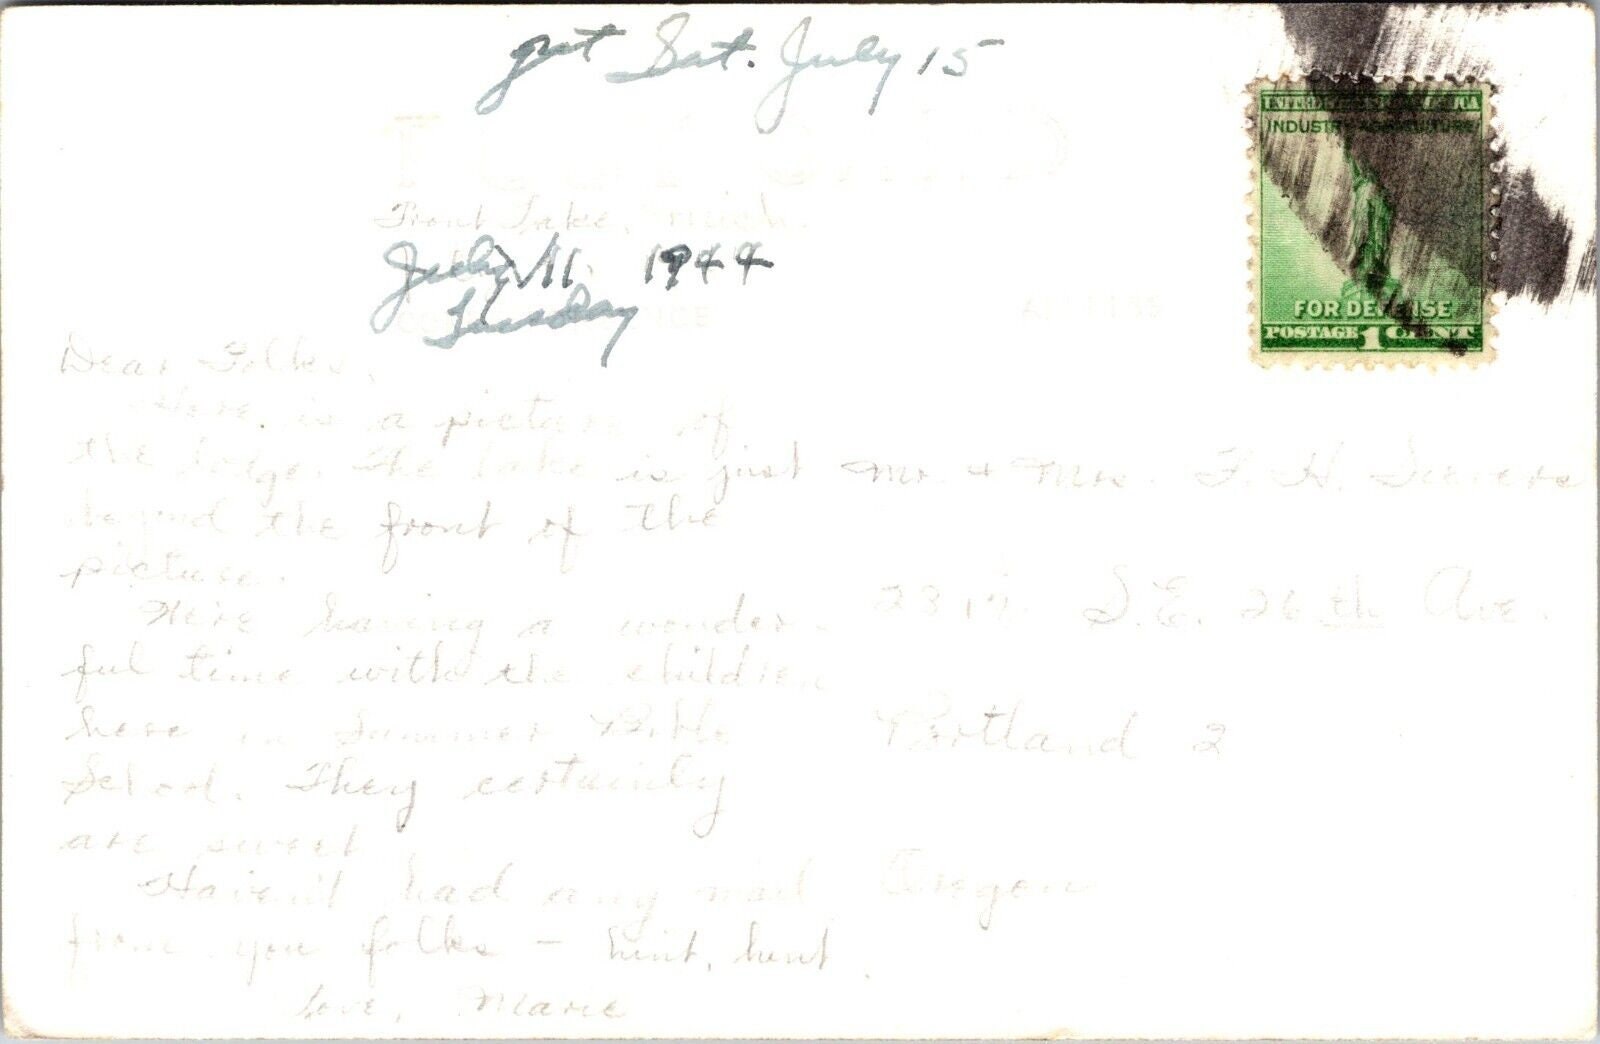 got Sat. July 15
UNITED STATES OF AMERICA
INDUSTRY AGRICULTURE
FOR DEFENSE
POSTAGE 1 CENT
POST CARD
Trout Lake, Mich.
July 11, 1944
Tuesday
CORRESPONDENCE
ADDRESS
Dear Folks,
Here is a picture of
the lodge. The lake is just
beyond the front of the
picture.
We're having a wonder-
ful time with the children
here in Summer Bible
School. They certainly
are sweet
Haven't had any mail
from you folks - hint, hint.
Love, Marie
Mr. + Mrs. F. H.
S.E. 26th Ave.
Portland 2
Oregon